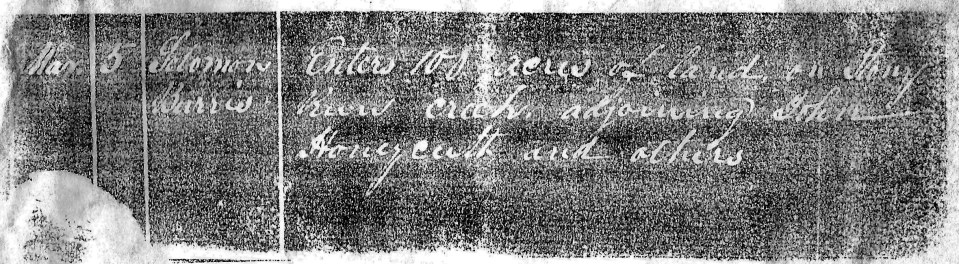 Mar 5 Solomon Enters 100 acres of land on Stony
Burris run creek adjoining John
Honeycutt and others